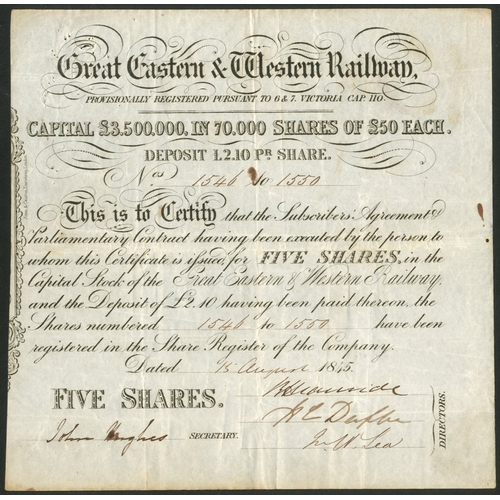 Great Eastern & Western Railway,
PROVISIONALLY REGISTERED PURSUANT TO 6 & 7. VICTORIA CAP. 110
CAPITAL £3,500,000, IN 70,000 SHARES OF £50 EACH.
DEPOSIT £2.10 PR SHARE.
Nos 1546 to 1550
This is to Certify that the Subscribers' Agreement &
Parliamentary Contract having been executed by the person to
whom this Certificate is issued, for FIVE SHARES, in the
Capital Stock of the Great Eastern & Western Railway,
and the Deposit of £2.10 having been paid thereon, the
Shares numbered 1546 to 1550 have been
registered in the Share Register of the Company.
Dated August 1845.
FIVE SHARES.
John Hughes SECRETARY.
DIRECTORS.